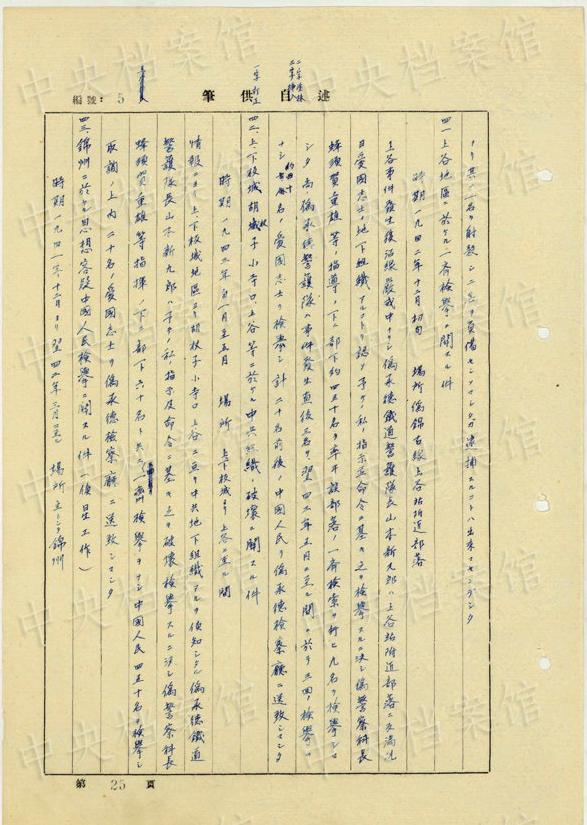 述自供筆
編號: 5
ノ其ノ一名ヲ射撃シ
四一、上谷地區ニ於ケル一斉検挙ニ関スル件
時期 一九四二年十二月初旬 場所 偽錦古線上谷站附近部落
上谷事件發生後沿線嚴戒中ナリシ偽承德鐵道警護隊長山本新九郎ハ上谷站附近部落ニ
愛國志士ノ地下組織アルコトヲ認メ予ノ私ノ指示並命令ニ基キ之ヲ検挙スルニ決シ偽警察科長
蜂須賀重雄等指導ノ下ニ部下約四五十名ヲ率ヰ該部落ノ一斉検索ヲ行ヒ九名ヲ検挙シ
シタ 尚偽承德警護隊ハ事件發生直後三名ヲ、翌四三年五月ニ至ル間ニ於テ三回ノ検挙ヲ
ナシ 名ノ愛國志士ヲ検挙シ計二十名前後ノ中國人民ヲ偽承德檢察廳ニ送致シマシタ
四二、上、下板城胡枝子小寺口、上谷等ニ於ケル中共組織ノ破壊ニ関スル件
時期 一九四三年自一月至五月 場所 上下板城ヨリ上谷ニ至ル間
情報ニヨリ上、下板城地區ヨリ胡枝子小寺口上谷ニ亘リ中共地下組織アルヲ偵知シタル偽承德鐵道
警護隊長山本新九郎ハ予ノ私ノ指示及命令ニ基キ之ヲ破壊検挙スルニ決シ偽警察科長
蜂須賀重雄等指揮ノ下ニ部下六十名ト共ニ一斉検挙ヲナシ中國人民四五十名ヲ検挙シ
取調ノ上内二十名ノ愛國志士ヲ偽承德檢察廳ニ送致シマシタ
四三、錦州ニ於ケル思想容疑中國人民検挙ニ関スル件
時期 一九四一年十二月ヨリ翌四二年二月ニ至ル 場所 主トシテ錦州
第 25 頁
中央档案馆